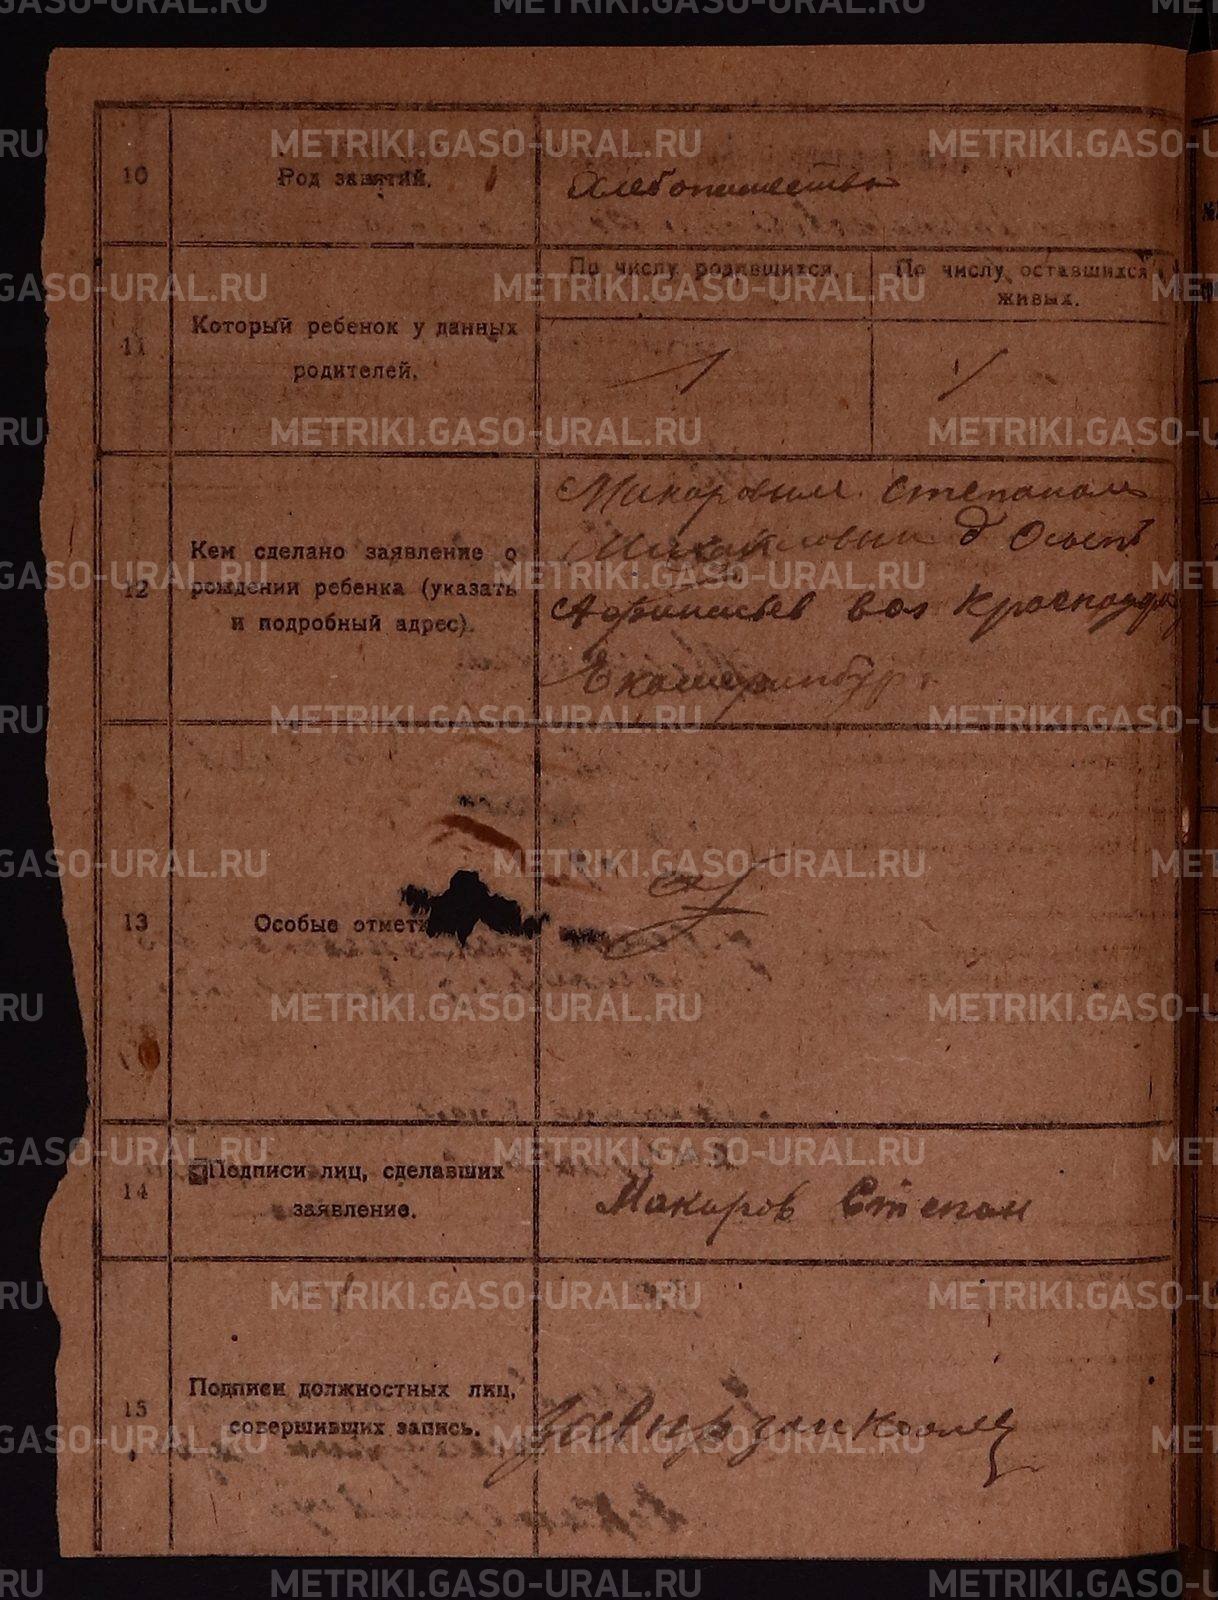 10
Род занятий.
Хлебопашество
11
Который ребенок у данных
родителей.
По числу родившихся.
По числу оставшихся
живых.
1
1
12
Кем сделано заявление о
рождении ребенка (указать
и подробный адрес).
Макаровым Степаном
Михайловым д
вол
Екатеринбур.
13
Особые отметк
14
Подписи лиц, сделавших
заявление.
Макаров Степан
15
Подписи должностных лиц,
совершивших запись.
METRIKI.GASO-URAL.RU